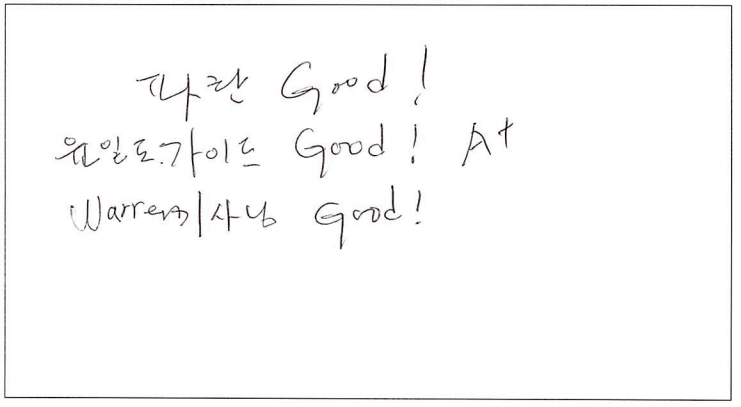 파란 Good!
원일도.가이드 Good! A+
Warren기사님 Good!